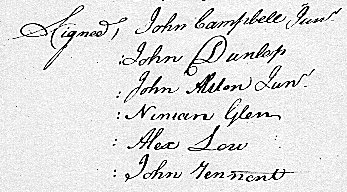 Signed, John Campbell Junr
: John Dunlop
: John Alston Junr
: Ninian Glen
: Alex Low
: John Tennent